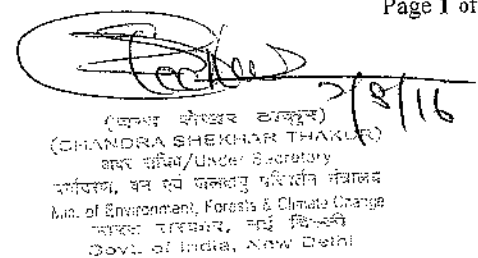 Page 1 of
7/8/16
(चन्द्र शेखर ठाकुर)
(CHANDRA SHEKHAR THAKUR)
अवर सचिव/Under Secretary
पर्यावरण, वन एवं जलवायु परिवर्तन मंत्रालय
Min. of Environment, Forests & Climate Change
भारत सरकार, नई दिल्ली
Govt. of India, New Delhi